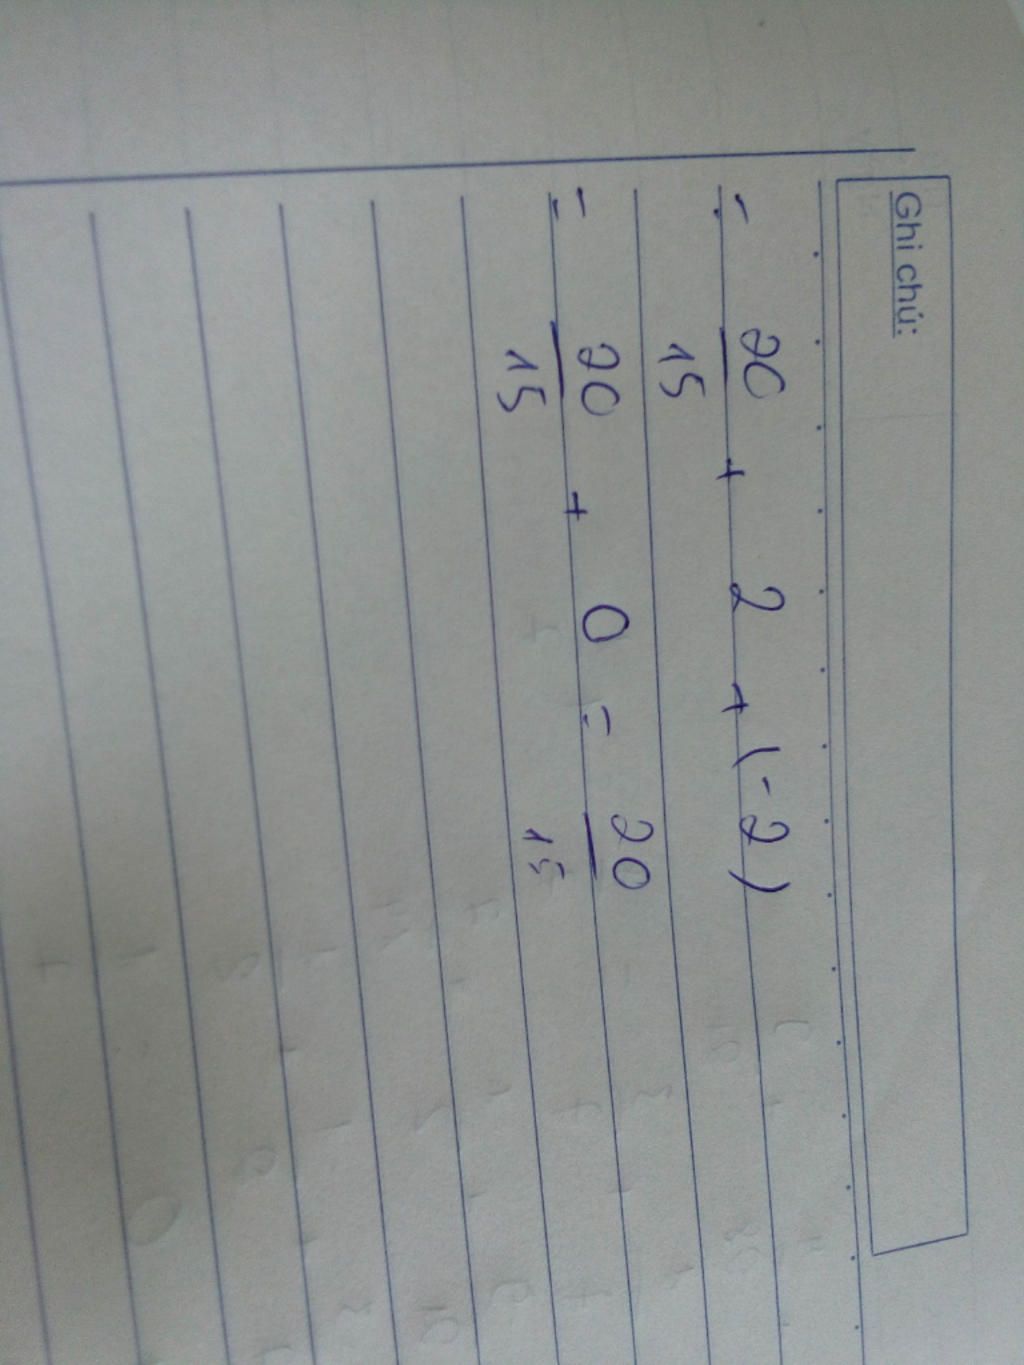 Ghi chú:
= 20/15 + 2 + (-2)
= 20/15 + 0 = 20/15